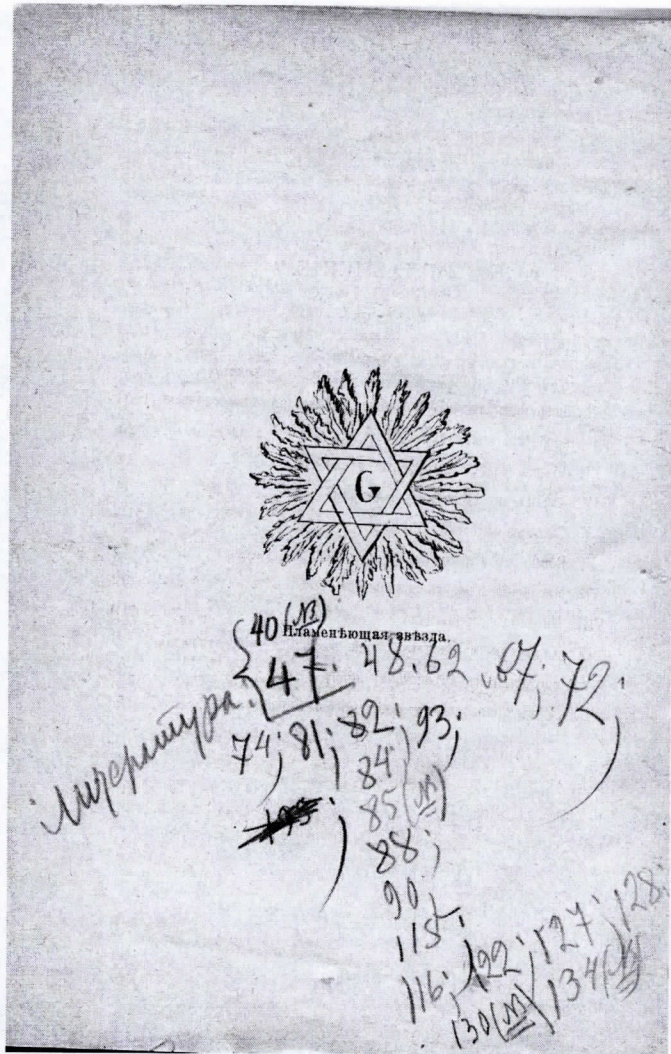 G
40 (NB)
Пламенѣющая звѣзда.
Литература: 47. 48. 62. 67; 72;
74; 81; 82; 93;
84
85 (NB)
88;
90,
115,
116; 122; 127; 128.
130 (NB) 134 (NB)